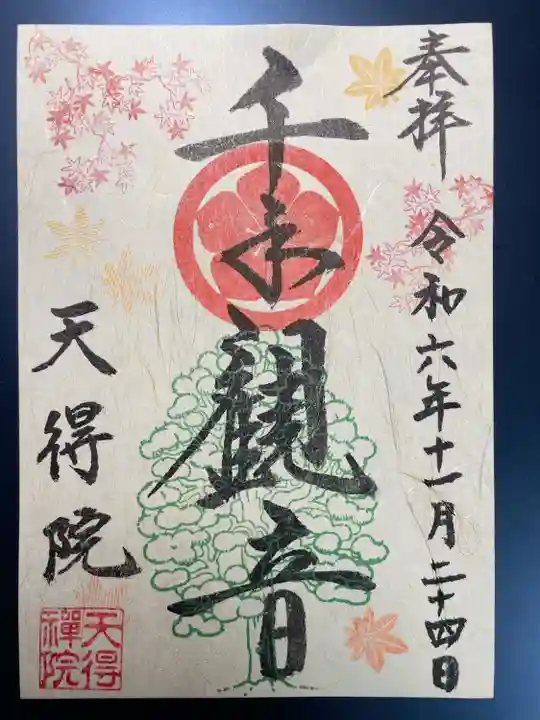 奉拝
令和六年十一月二十四日
千手観音
天得院
天得
禪院